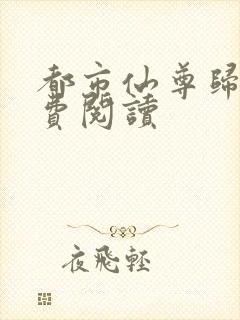 都市仙尊歸
費閱讀
夜飛輕